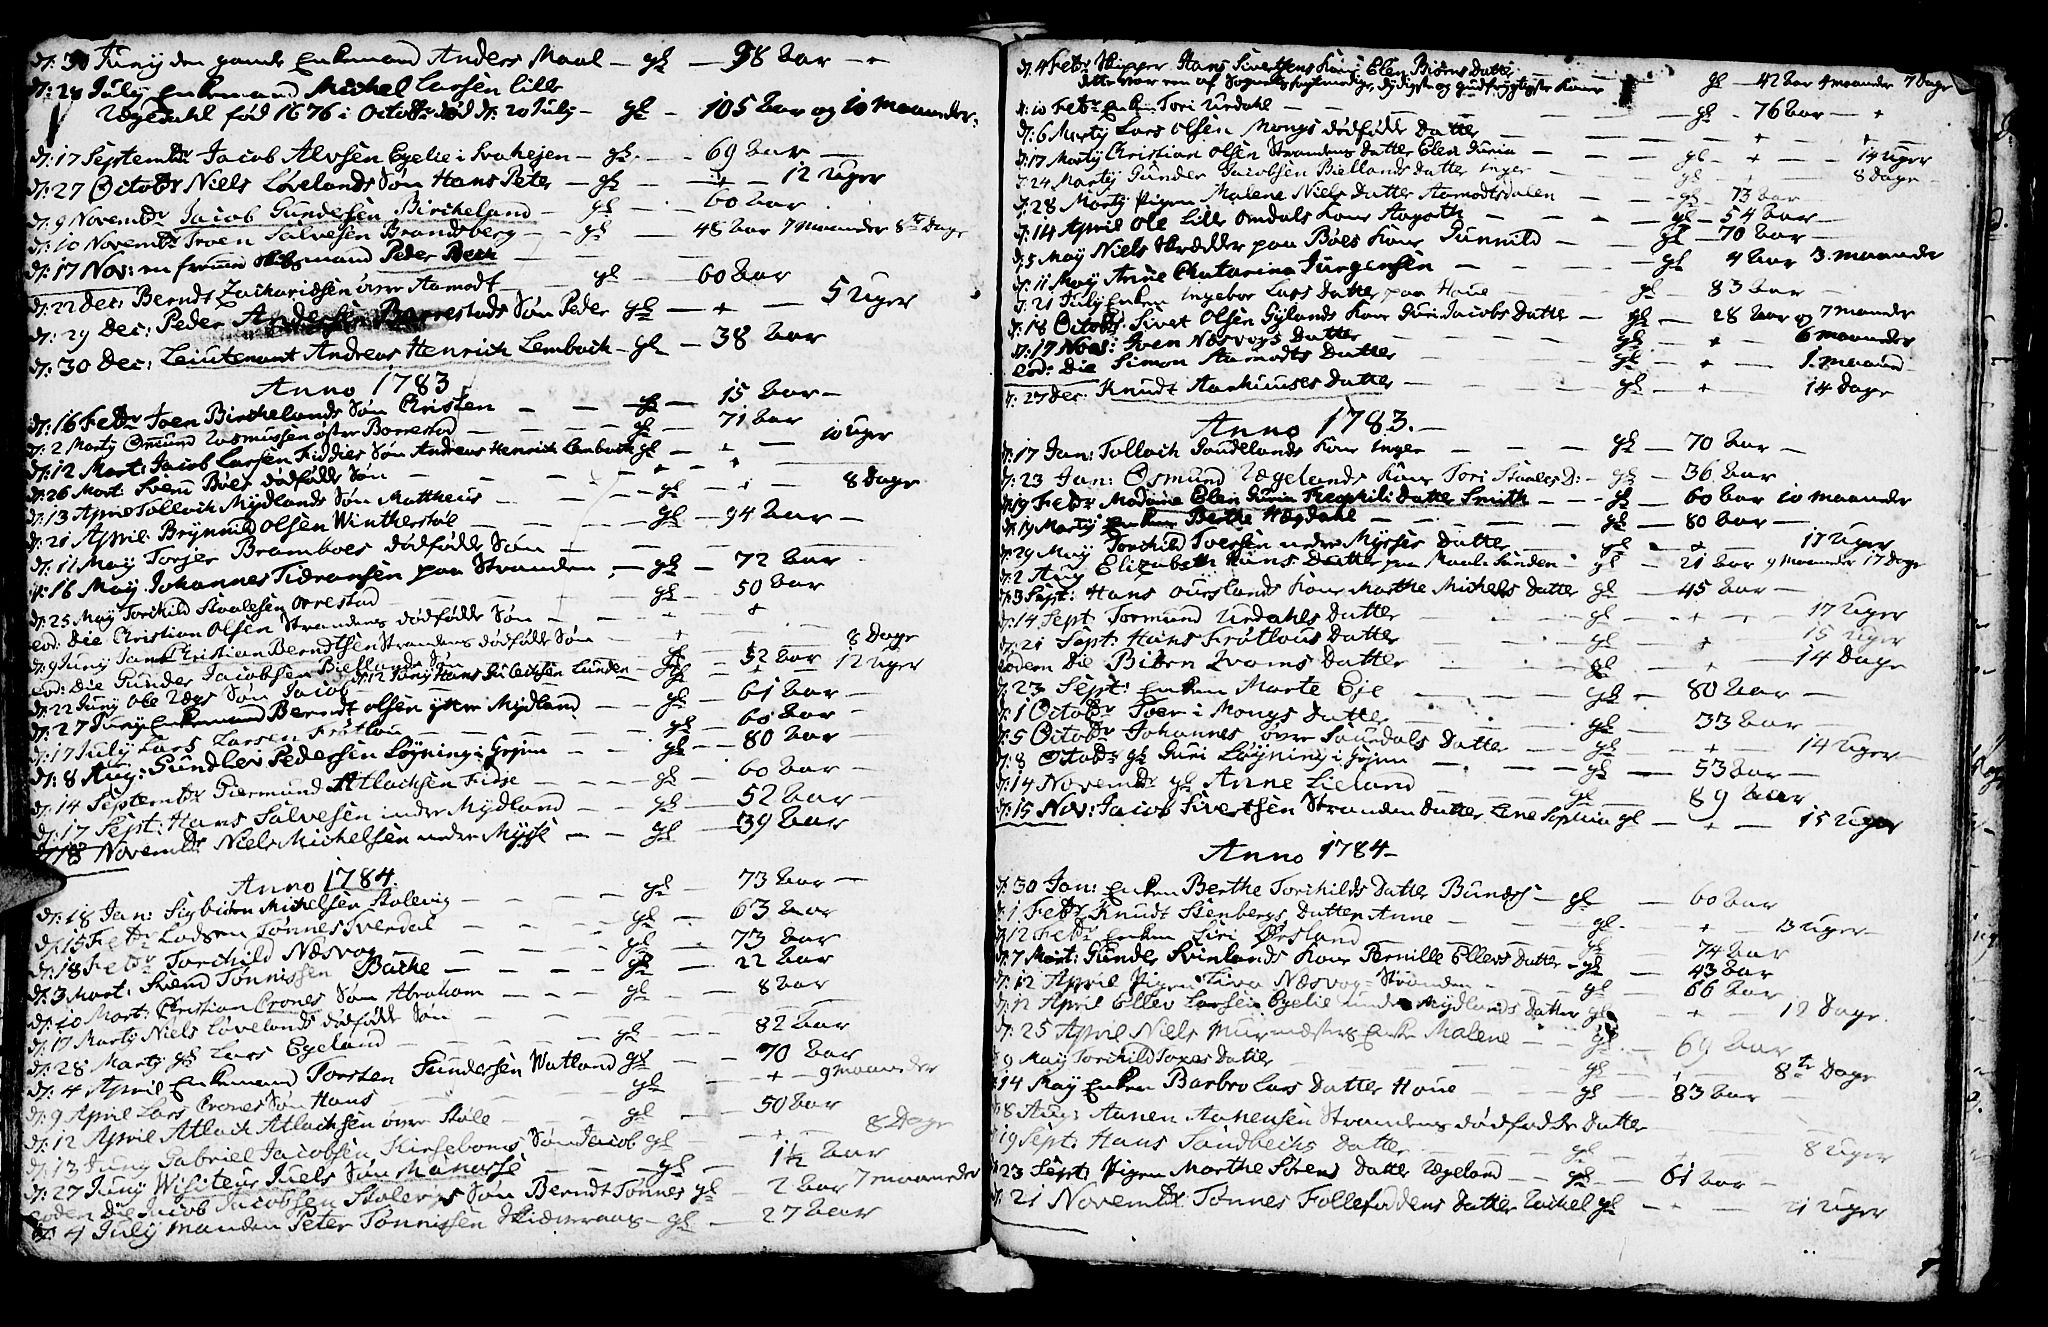 d: 30 Junij den gamle Enkemand Anders Maal – gl – 98 Aar –
d: 28 Julij Enkemand Michel Larsen Lille
Ægedahl fød 1676 i Octobr død d: 20 Julij – gl – 105 Aar og 10 Maaneder
d: 17 Septembr Jacob Alvsen Egelie i Svahejen – gl – 69 Aar –
d: 27 Octobr Niels Lövelands Søn Hans Peter – gl – + – 12 Uger
d: 9 Novembr Jacob Gundersen Birkeland – gl – 60 Aar
d: 10 Novembr Troen Salvesen Brandsberg – gl – 48 Aar 7 Maaneder 8te Dage
d: 17 Nov: en fremmed mand Peder Beck
d: 22 Dec: Berndt Zachariesen övre Aamodt – gl – 60 Aar
d: 29 Dec: Peder Andersen Borrestads Søn Peder gl – + – 5 Uger
d: 30 Dec: Leiutenant Andreas Henrich Lembach – gl – 38 Aar
Anno 1783
d: 16 Febr Joen Birkelands Søn Christen – gl – 15 Aar –
d: 2 Martij Omund Rasmussen öfre Borrestad – gl – 71 Aar
d: 12 Mart: Jacob Larsen Fiddies Søn Andreas Henrich Lembach gl – + – 10 Uger
d: 26 Mart: Svein Böes dödfödde Søn – + –
d: 13 April Tollach Mydlands Søn Mattheus – gl – + – 8 Dage
d: 21 April: Brynnild Olsen Winterstöl – gl – 94 Aar –
d: 11 Maij Torjer Bramboes dödfödde Søn –
d: 16 Maij Johannes Tidransen paa Stranden – gl – 72 Aar
d: 25 Maij Torchild Staalesen Orrestad – gl – 50 Aar
eod: Die Christian Olsen Strandens dödfödde Søn – +
d: 9 Junij Jans Christian Berndtsen Strandens dödfödde Søn – +
eod: Die Gunder Jacobsen Biellands Søn – gl – 8 Dage
d: 12 Junij Hans Lunden – gl – 52 Aar
d: 22 Junij Ole Vægs Søn Jacob – gl – + – 12 Uger
d: 27 Junij Enkemand Berndt Olsen ytre Mydland – gl – 61 Aar –
d: 17 Julij Lars Larsen Fröttou – gl – 60 Aar –
d: 8 Aug: Gundlev Pedersen Löyning i Gyljen – gl – 80 Aar –
d: 14 Septembr Giermund Atlachsen Fidje – gl – 60 Aar –
d: 17 Sept: Hans Salvesen indre Mydland – gl – 52 Aar –
d: 18 Novembr Niels Michelsen nedre Mysse – gl – 39 Aar
Anno 1784
d: 18 Jan: Sigbiörn Michelsen Stolevig – gl – 73 Aar –
d: 15 Febr Lodsen Tönnes Tverdal – gl – 63 Aar
d: 18 Febr Torchild Næsvog – gl – 73 Aar
d: 3 Mart: Svend Tönnissen Bache – gl – 22 Aar
d: 10 Mart: Christian Crones Søn Abraham – gl – 8 Aar
d: 17 Martij Niels Lövelands dödfödde Søn –
d: 28 Martij gl Lars Egeland – gl – 82 Aar
d: 4 April Enkemand Torsten Gundersen Watland gl – 70 Aar
d: 9 April Lars Crones Søn Hans – gl – + – 9 Maaneder
d: 12 April Atlach Atlachsen övre Stöle – gl – 50 Aar
d: 13 Junij Gabriel Jacobsen Kirseboms Søn Jacob gl – + – 8 Dage
d: 27 Junij Visiteur Juels Søn Manasse – gl – 1½ Aar
Eoden Die Jacob Jacobsen Stolevigs Søn Berndt Tönnes gl – 2 Aar 7 Maaneder
d: 4 Julij Manden Peter Tönnissen Skidneraas – gl – 27 Aar
d: 4 Febr Skipper Hans Sivertsens Kone Elen Biörns Datter – gl – 42 Aar 4 Maaneder 7 Dage
dette var en af Sognets fornuftige, dydigste og gudfrygtigste Koner
d: 10 Febr Enken Tori Urdahl – gl – 76 Aar – +
d: 6 Martij Lars Olsen Mongs dödfödde Datter – + – +
d: 17 Martij Christian Olsen Strandens Datter Elen Guria – gl – + – 14 Uger
d: 24 Martij Gunder Jacobsen Biellands datter Inger – gl – + – 8 Dage
d: 28 Martij Pigen Malene Niels Datter Aamodtsdalen – gl – 73 Aar
d: 14 April Ole Lille Omdals Kone Aagoth – gl – 54 Aar –
d: 5 Maij Niels Skrædder paa Böes Kone Gunnild – gl – 70 Aar
d: 11 Maij Anne Chatarina Jürgensen – gl – 4 Aar 3 Maaneder
d: 21 Julij Enken Ingebor Lars Datter paa Houe – gl – 83 Aar –
d: 18 Octobr Sivert Olsen Gylands Kone Guri Jacobs Datter – gl – 28 Aar og 7 Maaneder
d: 17 Nov: Iven Næsvogs Datter – gl – + – 6 Maaneder
eod: Die Simon Aamodts Datter – gl – + – 1 Maaned
d: 27 Dec: Knudt Aarhuuses Datter – gl – + – 14 Dage
Anno 1783 –
d: 17 Jan: Tollach Goudelands Kone Inger – gl – 70 Aar –
d: 23 Jan: Osmund Ægelands Kone Tori Staales D: – gl – 36 Aar –
d: 19 Febr Madame Elen Guria Theophili Datter Smith – gl – 60 Aar 10 Maaneder
d: 19 Martij Enken Berthe Hægdahl – gl – 80 Aar –
d: 29 Maij Torchild Iversen nedre Mysses Datter – gl – + – 17 Uger
d: 2 Aug Elizabeth Hans Datter paa Maale Sunden – gl – 21 Aar 9 Maaneder 17 Dage
d: 3 Sept: Hans Ouslands Kone Marthe Michels Datter gl – 45 Aar –
d: 14 Sept Tormund Urdahls Datter – gl – + – 17 Uger
d: 21 Sept: Hans Fröttous Datter – gl – + – 15 Uger
Eodem Die Biörn Qvams Datter – gl – + – 14 Dage
d: 23 Sept: Enken Marte Eje – gl – 80 Aar –
d: 1 Octobr Toer i Mongs Datter – gl – 33 Aar –
d: 5 Octobr Johannes övre Saurdals Datter – gl – + – 14 Uger –
d: 8 Octobr gl Guri Löyning i Gyljen – gl – 53 Aar –
d: 14 Novembr gl Anne Lieland – gl – 89 Aar
d: 15 Nov: Jacob Sivertsen Stranden Datter Lene Sophia gl – + – 15 Uger
Anno 1784 –
d: 30 Jan: Enken Berthe Torchilds Datter Bundes – gl – 60 Aar
d: 1 Febr Knudt Stenbergs Datter Anne – gl – + – 13 Uger –
d: 12 Febr Enken Siri Örsland – gl – 74 Aar
d: 7 Mart: Gunder Svinlands Kone Pernille Ellevs Datter – gl – 43 Aar
d: 12 April Pigen Siva Næsvog Stranden – gl – 66 Aar
d: 12 April Ellev Larsen Egelie indre Mydlands Datter gl – + – 19 Dage
d: 25 April Niels Muurmesters Enke Malene – gl – 69 Aar
d: 9 Maij Torchild Toxes Datter – gl – + – 8te Dage
d: 14 Maij Enken Barbro Lars Datter Houe – gl – 83 Aar –
d: 8 Aug: Aanen Aanensen Strandens dödfödde Datter
d: 19 Sept: Hans Sandbechs Datter – gl – + – 8 Uger
d: 23 Sept: Pigen Marthe Sörens Datter Ægeland – gl – 61 Aar –
d: 21 Novembr Tönnes Follefodens Datter Rachel gl – + – 21 Uger